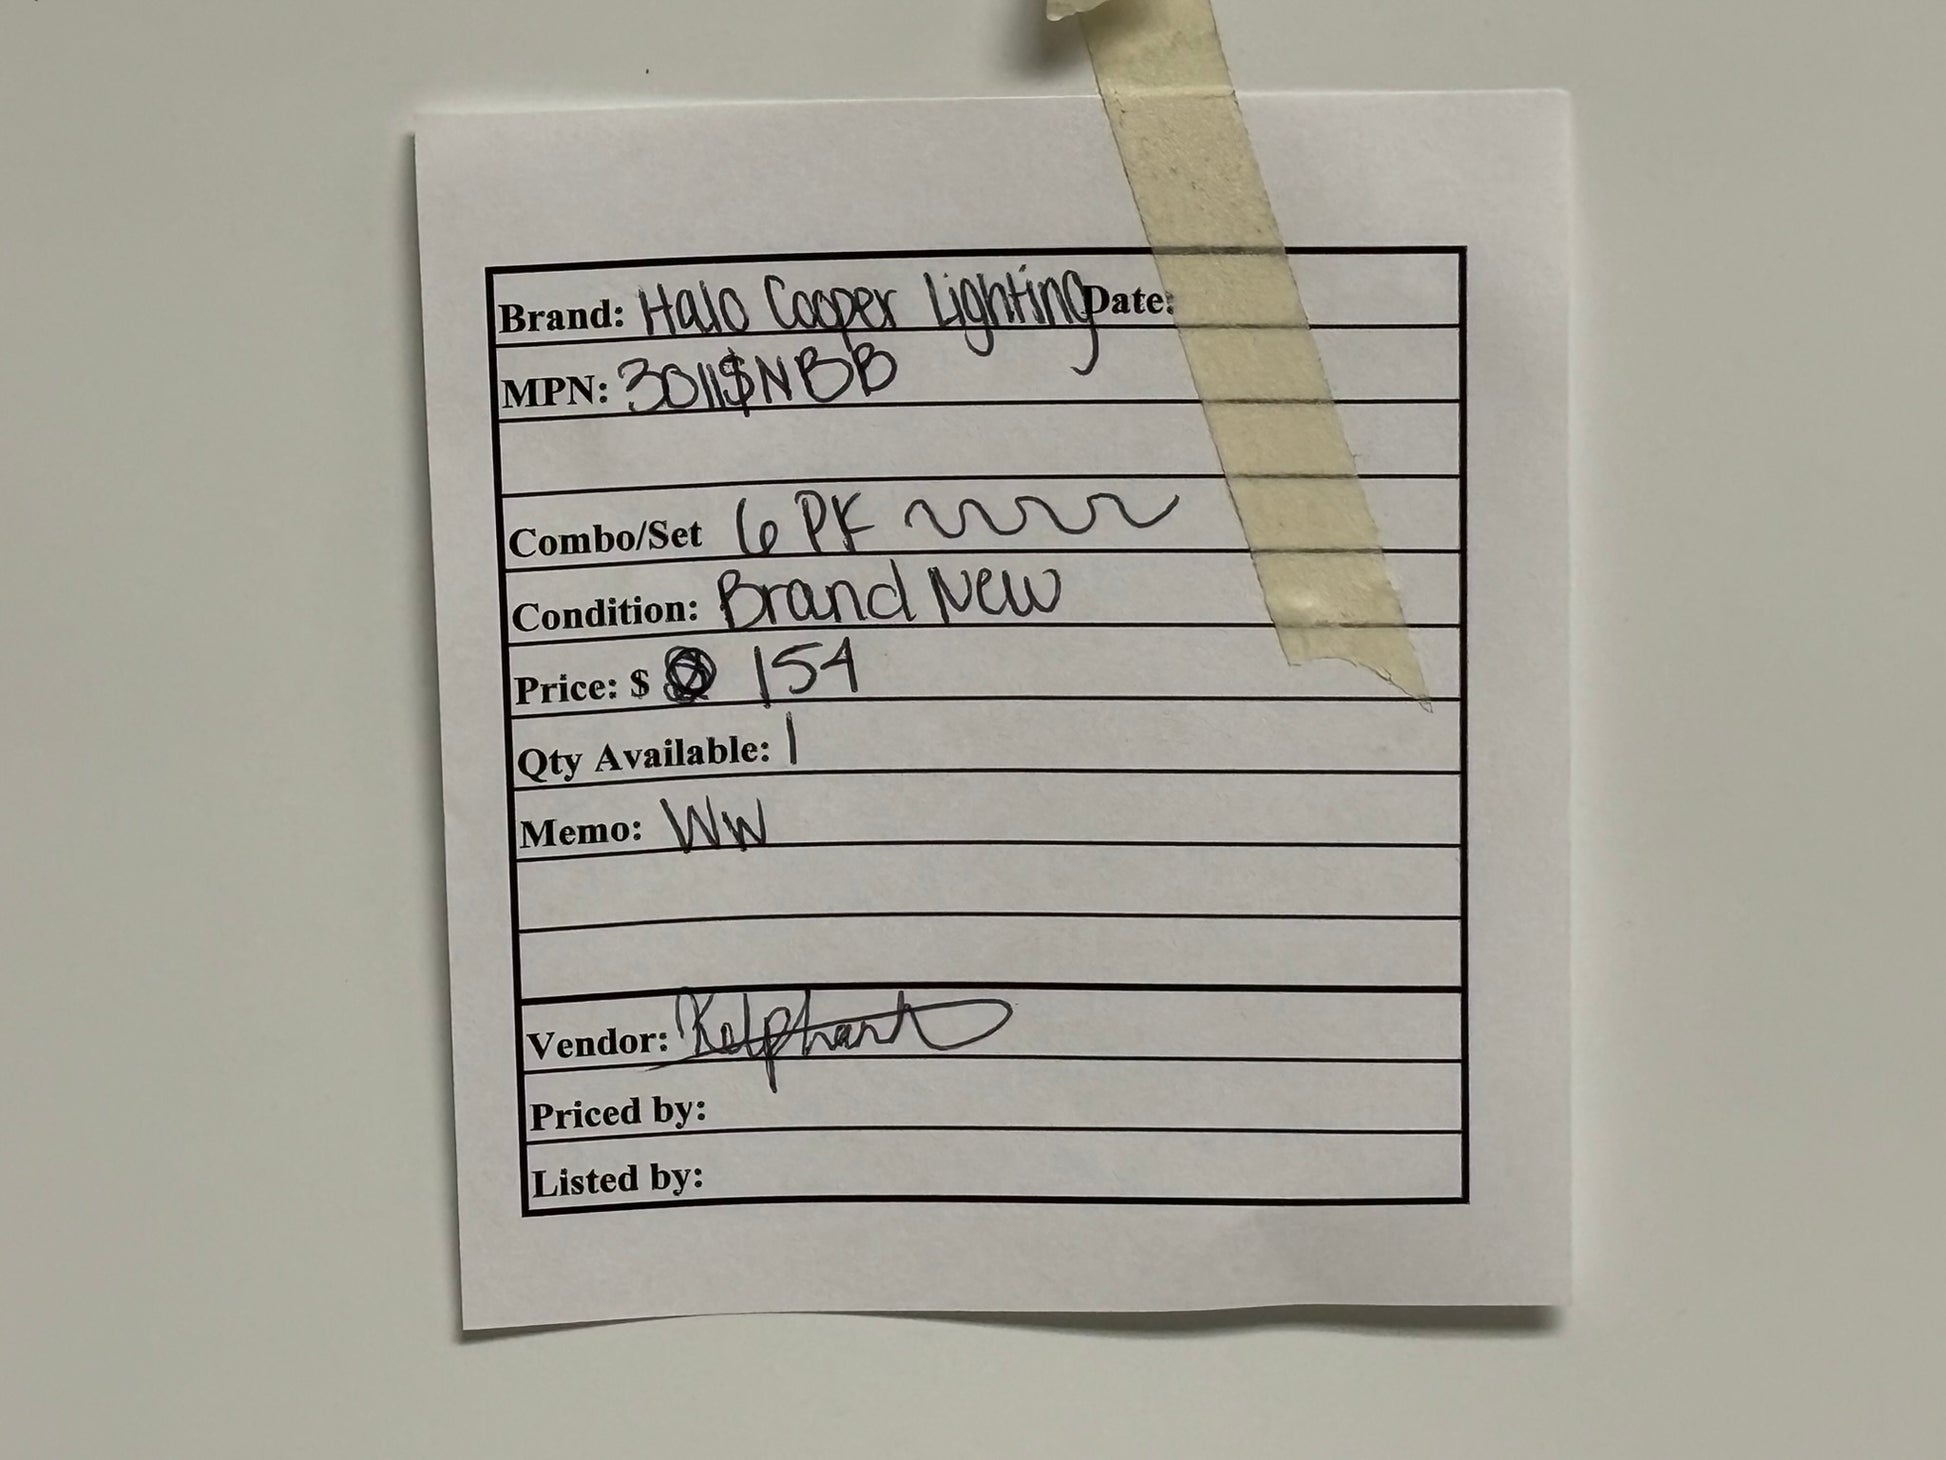 Brand: Halo Cooper Lighting Date:
MPN: 3011$NBB
Combo/Set 6 PK
Condition: Brand New
Price: $ 154
Qty Available: 1
Memo: WW
Vendor:
Priced by:
Listed by: